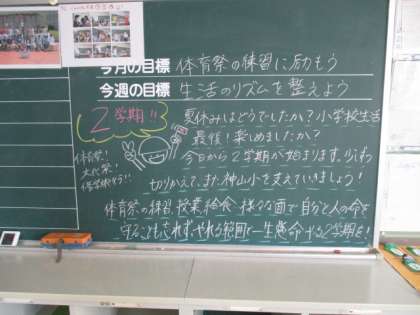 今月の目標 体育祭の練習に励もう
今週の目標 生活のリズムを整えよう
2学期!!
夏休みはどうでしたか?小学校生活
最後!楽しめましたか?
今日から2学期が始まります。
切りかえて、また、神山小を支えていきましょう!
体育祭!
文化祭!
修学旅行!!
体育祭の練習、授業、給食、様々な面で自分と人の命を
守ることも忘れずやれる範囲で一生懸命やる2学期を!